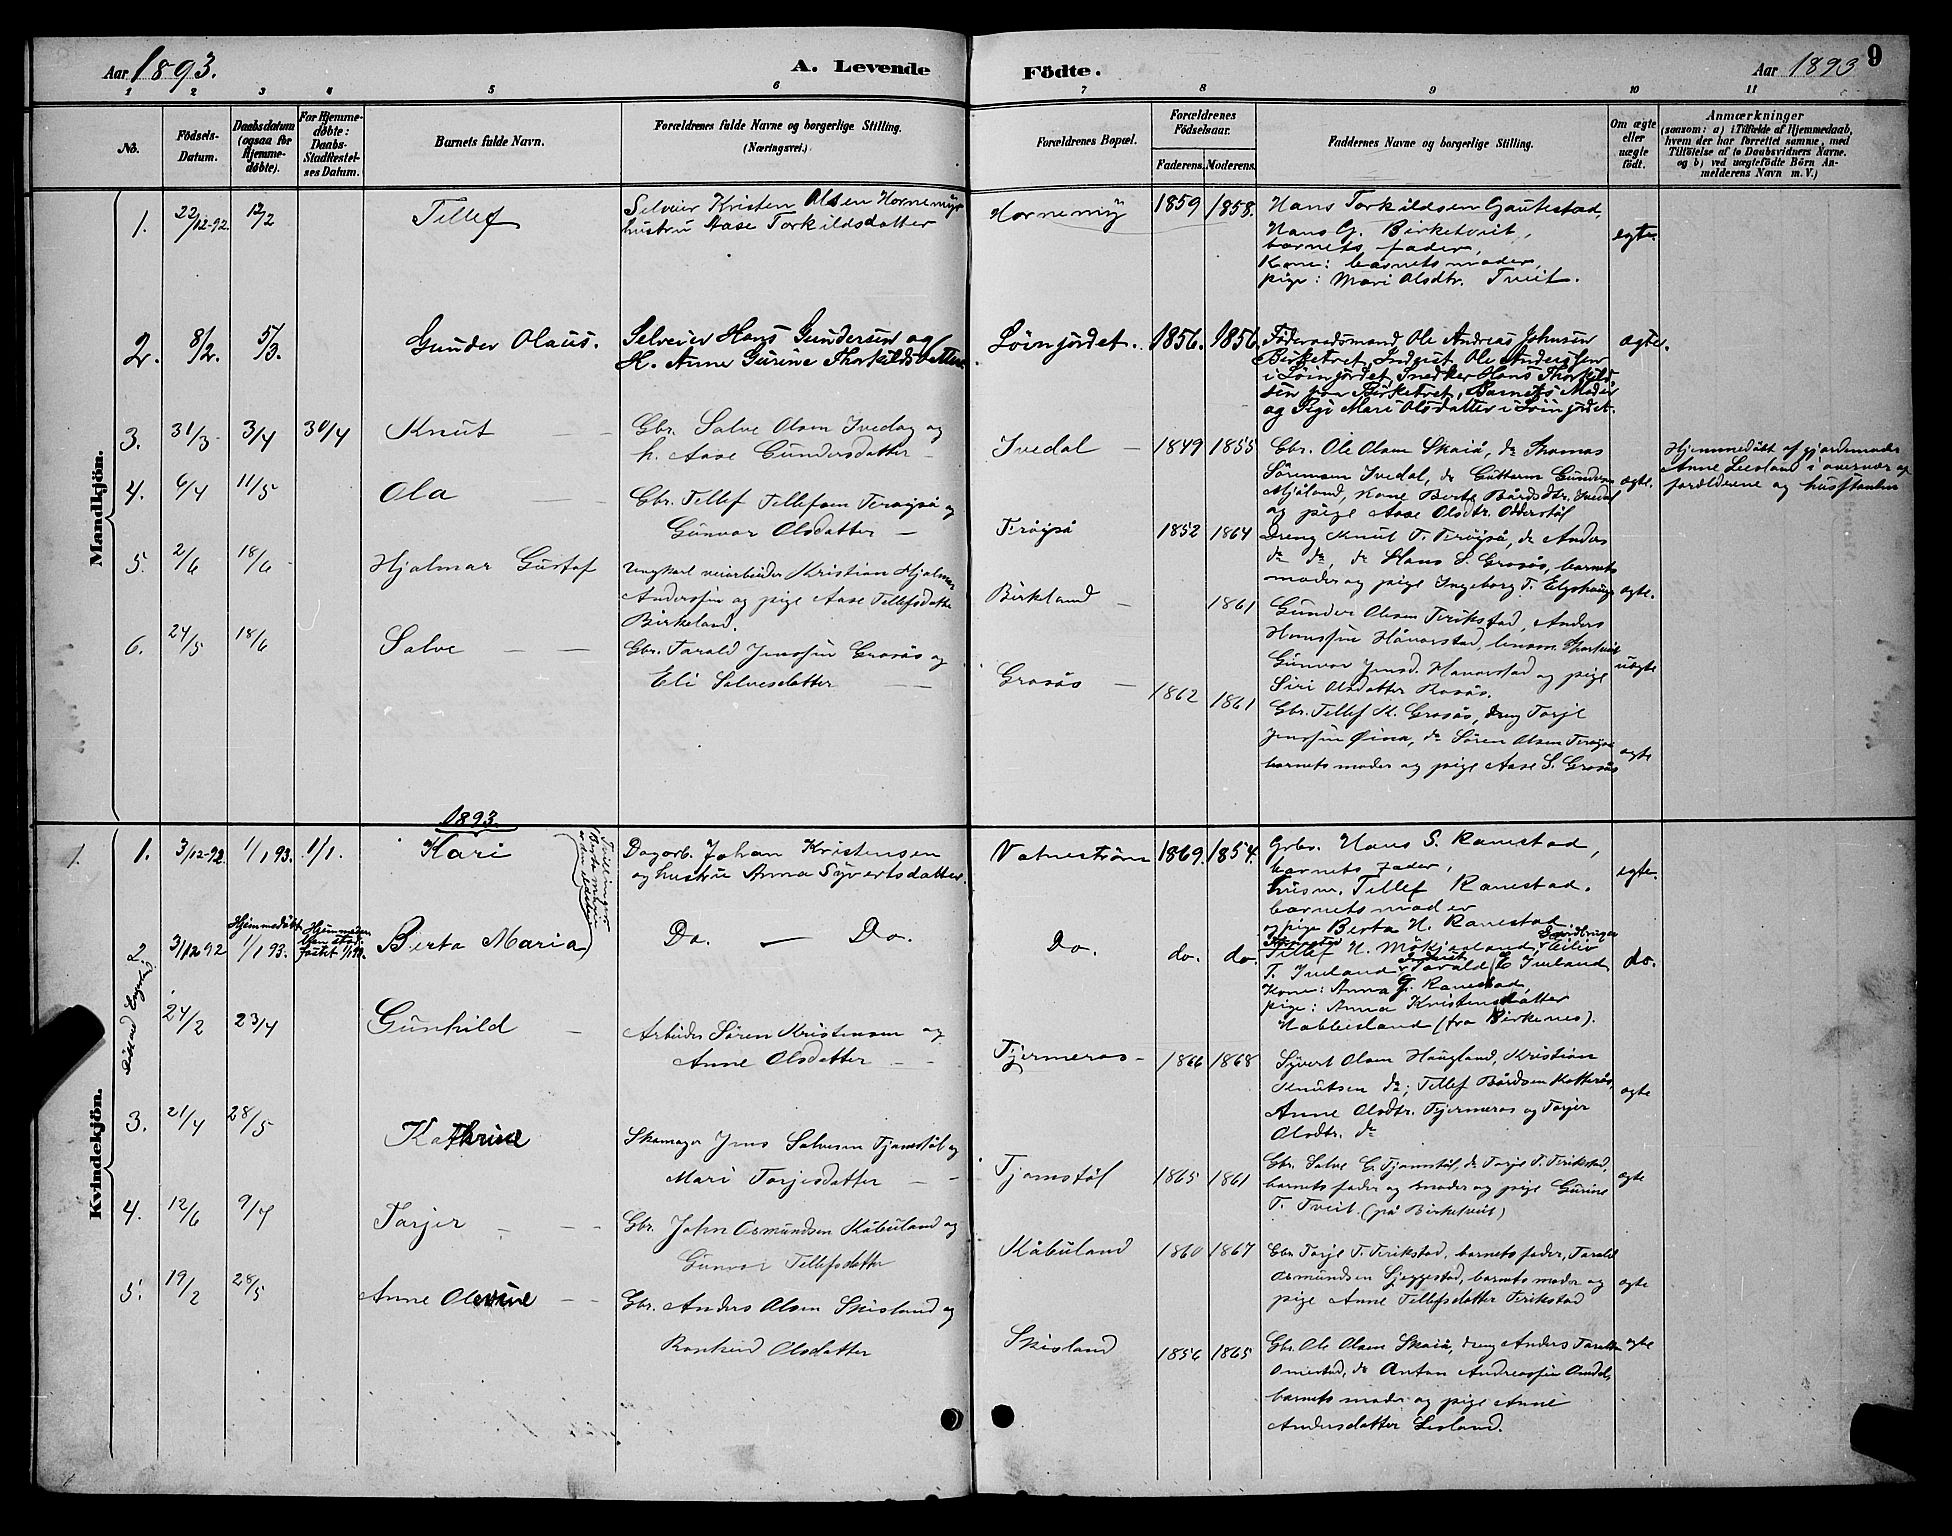 Aar 1893.
A. Levende
Födte.
Aar 1893
9
1 2 3 4 5 6 7 8 9 10 11
No.
Födsels-
Datum.
Daabsdatum
(ogsaa for
Hjemme-
døbte).
For Hjemme-
døbte:
Daabs-
Stadfæstel-
ses Datum.
Barnets fulde Navn.
Forældrenes fulde Navne og borgerlige Stilling.
(Næringsvei.)
Forældrenes Bopæl.
Forældrenes
Födselsaar.
Faderens.
Moderens.
Faddernes Navne og borgerlige Stilling.
Om ægte
eller
uægte
födt.
Anmærkninger
(saasom: a) i Tilfælde af Hjemmedaab,
hvem der har forrettet samme, med
Tilföielse af to Daabsvidners Navne.
og b) ved uægtefödte Börn An-
melderens Navn m. V.)
Mandkjön.
1. 22/12-92. 12/2 Tillef
Selveier Kristen Olsen Hornemyr
hustru Aase Torkildsdatter
Hornemyr 1859 1858.
Hans Torkildsen Gautestad
Hans G. Birketveit,
barnets fader,
Kone: barnets moder,
pige: Mari Olsdtr. Tveit.
egte.
2. 8/2. 5/3. Gunder Olaus.
Selveier Hans Gundersen og
H. Anne Gurine Thorkildsdatter.
Löinjördet. 1856. 1856.
Föderaadsmand Ole Andreas Johnsen
Birketvet, Inderst Ole Anderssen
i Löinjördet, Snedker Hans Thorkild
sen paa Birketvet, Barnets Moder
og Pige Mari Olsdatter i Löinjördet.
ægte.
3. 31/3. 3/4 30/4 Knut
Gbr. Salve Olsen Ivedal og
h. Aase Gundersdatter
Ivedal 1849 1855
Gbr. Ole Olsen Skaiå, do Thomas
Sörensen Ivedal, do Guttorm Gunders
Mjåland, Kone Berte Bårdsdtr. Ivedal
og pige Aase Olsdtr. Odderstøl
ægte.
Hjemmedöbt af gjordemoder
Anne Liesland i overvær af
forældrene og husstanden
4. 6/4 11/5 Ola
Gbr. Tellef Tellefsen Terøyså og
Gunvor Olsdatter
Terøyså 1852 1864
Dreng Knut T. Terøyså, do Anders
do do, do Hans S. Grosås, barnets
moder og pige Ingeborg T. Elgshaug
ægte.
5. 2/6 18/6 Hjalmar Gustaf
Ungkarl veiarbeider Kristian Hjalmar
Anderssen og pige Aase Tellefsdatter
Birkeland.
Birkland 1861
Gunder Olsen Ferikstad, Anders
Hanssen Håvorstad,
Gunvor Jensd. Havorstad og pige
Siri Olsdatter Rosås.
uægte
6. 24/5 18/6 Salve
Gbr. Tarald Jenssen Grosås og
Eli Salvesdatter
Grosås 1862 1861
Gbr. Tellef K. Grosås, dreng Torje
Jenssen Øina, do Sören Olsen Terøyså
barnets moder og pige Aase S. Grosås
ægte
Kvindekjön.
1893.
1. 3/12-92. 1/1 93. 1/1. Kari
Tvillinger
Berta Maria
Dagarb. Johan Kristensen
og hustru Anna Syvertsdatter.
Vatneström 1869. 1854.
Grbr. Hans S. Ramestad,
barnets fader,
husm. Tellef Ramestad.
barnets moder
og pige Berta H. Ramestad
egte.
2. 3/12 92 Hjemmedöbt 1/1 93. Berta Maria
Do. — Do.
Do. do. do.
Tellef H. Mökjåland,
T. Iveland Inderst Tarald E. Iveland,
Kone: Anna G. Ramestad,
pige: Anna Kristensdatter
Habbesland (fra Birkenes).
do.
24/2 23/4 Gunhild
Arbeider Sören Kristensen og
Anne Olsdatter
Tjermeros 1866 1868
Syvert Olsen Haugland, Kristian
Knutsen do; Tellef Bårdsen Katterås,
Anne Olsdtr. Tjermeros og Torjer
Olsdtr. do
ægte
3. 21/4 28/5 Kathrine
Skomager Jens Salvesen Tjomstöl og
Mari Torjesdatter
Tjomstöl 1865 1861
Gbr. Salve G. Tjomstöl, do Torje T. Ferikstad,
barnets fader og moder og pige Gurine
T. Tveit. (på Birketveit)
ægte
4. 12/6 9/7 Torjer
Gbr. John Osmundsen Kåbuland og
Gunvor Tellefsdatter
Kåbuland 1860 1867
Gbr Torje T. Ferikstad, barnets fader, Tarald
Osmundsen Ljeggestad, barnets moder og
pige Anne Tellefsdatter Ferikstad
ægte
5. 19/2 28/5 Anne Olevine
Gbr. Anders Olsen Skisland og
Ronheid Olsdatter
Skisland 1856 1865
Gbr. Ole Olsen Skaiå, dreng Anders
Omestad, do Anton Andreassen
barnets moder og pige Anne
Andersdatter Lisland.
ægte